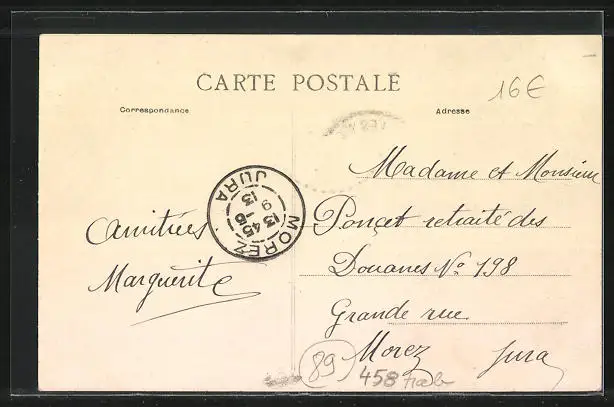 CARTE POSTALE
16€
Correspondance
Adresse
Madame et Monsieur
Ponçet retraité des
Douanes N° 198
Grande rue
Morez Jura
Amitiées
Marguerite
MOREZ
JURA
13 45
6 - 9
13
89
458